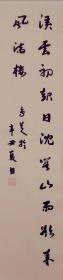 溪雲初起日沈閣山雨欲來
風滿樓
辛丑夏日